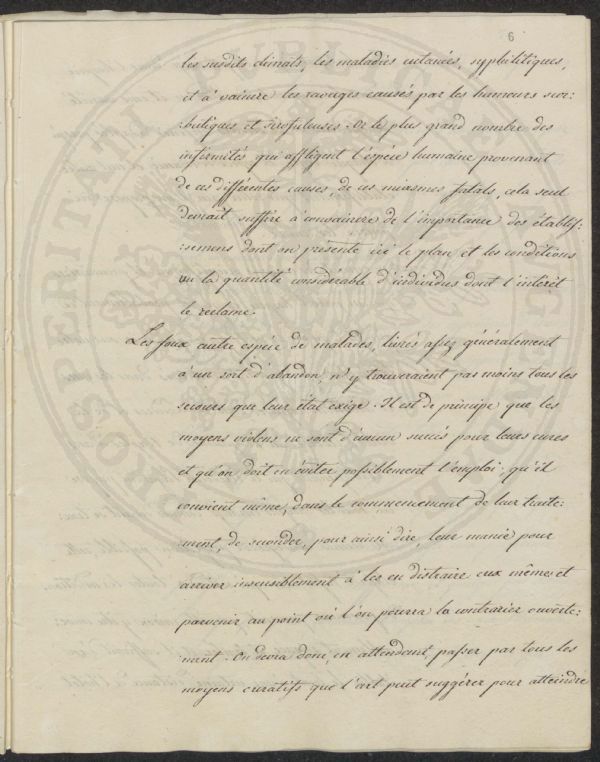 6
les susdits climats, les maladies cutanées, syphilitiques,
et à vaincre les ravages causés par les humeurs scor:
:butiques et scrofuleuses. Or le plus grand nombre des
infirmités qui affligent l'espéce humaine provenant
de ces différentes causes, de ces miasmes fatals, cela seul
devrait suffire à convaincre de l'importance des établis:
:semens dont on présente ici le plan et les conditions
vu la quantité considérable d'individus dont l'intérêt
le réclame.
Les foux autre espéce de malades, livrés assez généralement
à un sort d'abandon, n'y trouveraient pas moins tous les
secours que leur état exige. Il est de principe que les
moyens violens ne sont d'aucun succés pour leurs cures
et qu'on doit en éviter possiblement l'emploi; qu'il
convient même, dans le commencement de leur traite:
:ment, de seconder, pour ainsi dire, leur manie pour
arriver insensiblement à les en distraire eux mêmes et
parvenir au point où l'on pourra la contrarier ouverte:
:ment. On devra donc, en attendant, passer par tous les
moyens curatifs que l'art peut suggérer pour atteindre
PROSPERITATI PUBLICAE